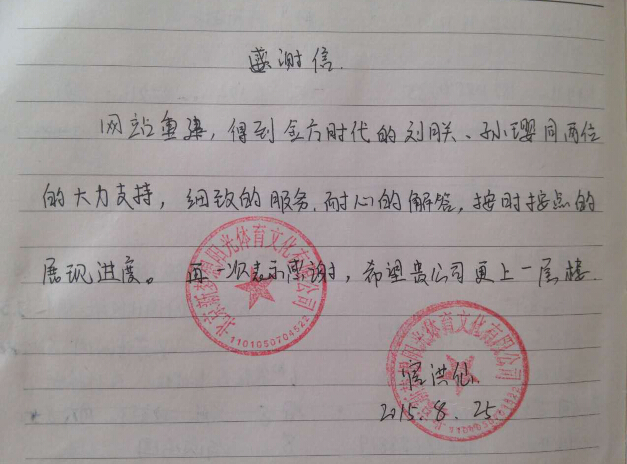 感谢信.
网站重建，得到全方时代的刘朕、孙璎同两位
的大力支持，细致的服务.耐心的解答，按时按点的
展现进度。再一次表示感谢，希望贵公司更上一层楼.
阳光体育文化有限公司
1101050704522
阳光体育文化有限公司
洪仙
2015.8.25